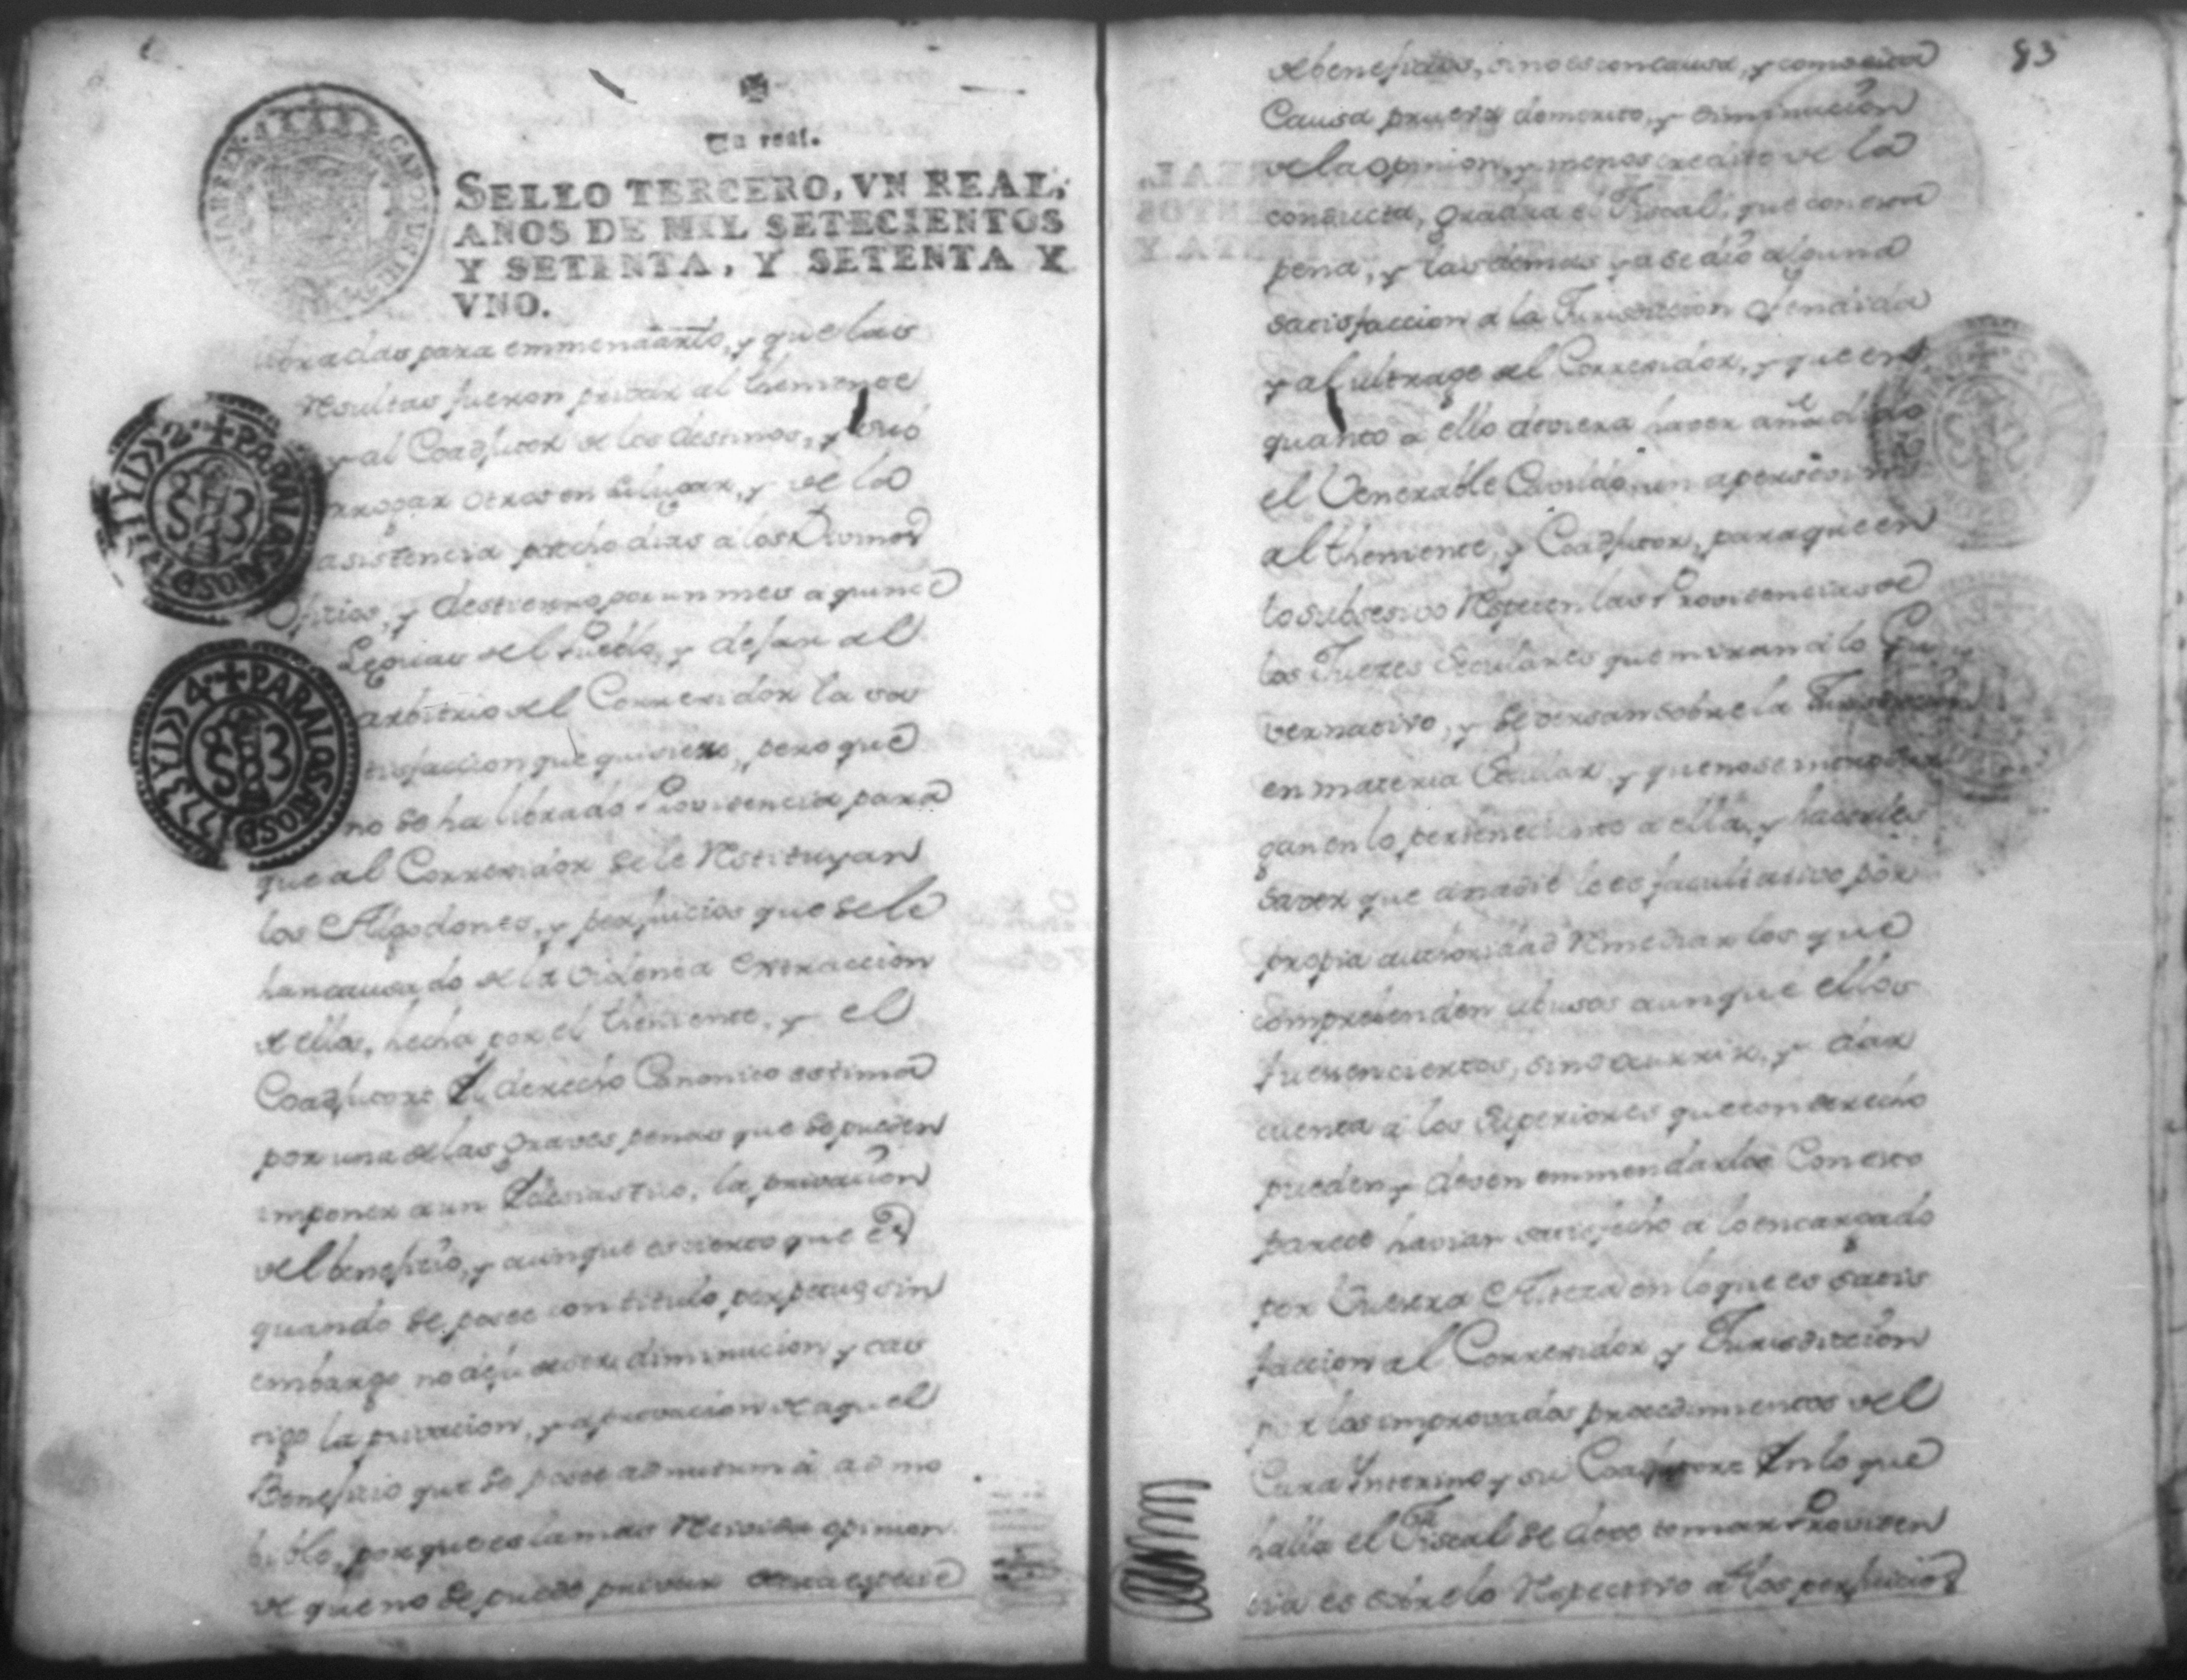 Un real.
SELLO TERCERO, VN REAL,
AÑOS DE MIL SETECIENTOS
Y SETENTA, Y SETENTA Y
VNO.
libradas para emmendarlo, y que las
Resultas fueron privar al theniente
y al Coadjutor de los destinos, y
otros en su lugar, y de la
asistencia por ocho dias a los Divinos
Oficios, y destierro por un mes a quince
Leguas del Pueblo, y dejar al
arbitrio del Corregidor la sa
tisfaccion que quisiere, pero que
no se ha librado Providencia para
que al Corregidor se le Restituyan
los Algodones, y perjuicios que se le
han causado de la violenta extraccion
de ellos, hecha por el theniente, y el
Coadjutor: El derecho Canonico estima
por una de las graves penas que se pueden
imponer a un Eclesiastico, la privacion
del beneficio, y aunque es cierto que es
quando se posee con titulo perpetuo sin
embargo no deja de ser diminucion y cas
tigo la privacion, y de aquel
Beneficio que se posee ad nutum â ad mo
bible, porque es la mas Recivida opinion
de que no se puede privar de esta especie
PARA LOS AÑOS D 1772 Y 1773
PARA LOS AÑOS D 1773 Y 1774
83
de beneficios, sino es con causa, y como esta
Causa prueva demerito, y diminucion
de la opinion, y menos credito de la
conducta, gradua el Fiscal, que con esta
pena, y las demas ya se dio alguna
satisfaccion a la Jurisdiccion ofendida
y al ultrage del Corregidor, y que en
quanto a ello deviera haver añadido
el Venerable Cavildo, un apersevim
al theniente, y Coadjutor, para que en
lo subsesivo Respeten las Providencias de
los Juezes Seculares que miran a lo Gu
vernativo, y se versan sobre la Jurisdiccion
en materia Secular, y que no se
gan en lo perteneciente a ella, y hacerles
saver que a nadie le es facultativo por
propia authoridad Remediar los que
comprehenden abusos aunque ellos
fuesen ciertos, sino ocurrir, y dar
cuenta a los Superiores que con derecho
pueden y deven emmendarlos: Con esto
parece haviar satisfecho a lo encargado
por Vuestra Alteza en lo que es satis
faccion al Corregidor y Jurisdiccion
por los improvados procedimientos del
Cura Interino y su Coadjutor: En lo que
halla el Fiscal se deve tomar Providen
cia es sobre lo Respectivo a los perjuicios